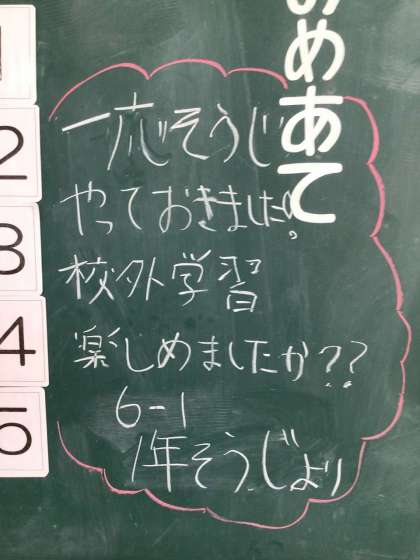 めあて
1
2
3
4
5
一応そうじ
やっておきました。
校外学習
楽しめましたか??
6-1
1年そうじより